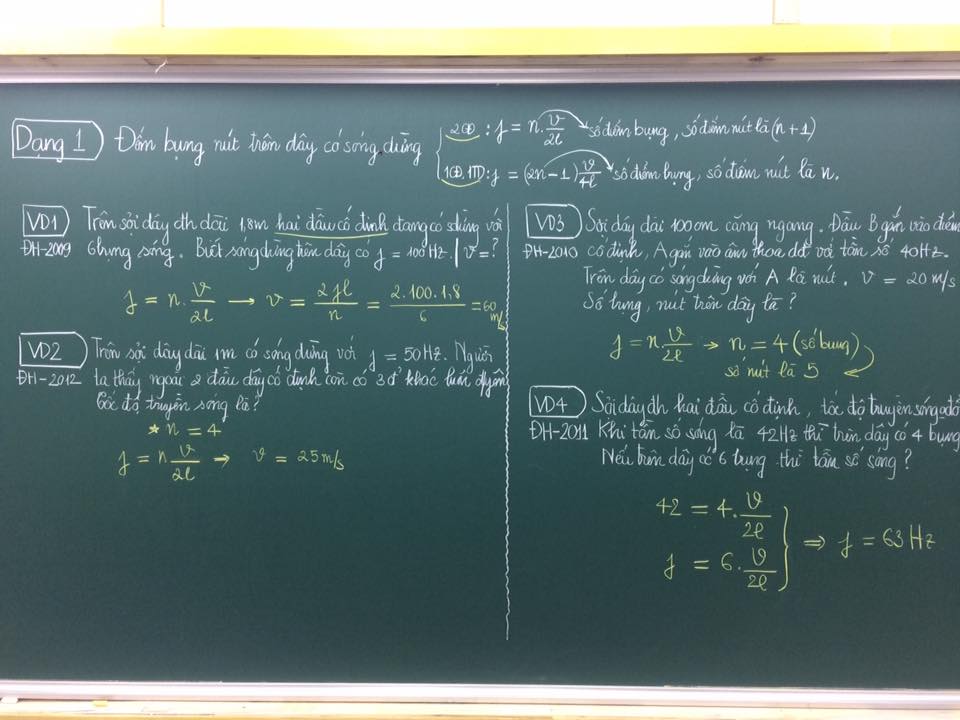 Dạng 1 Đếm bụng nút trên dây có sóng dừng
2CĐ : f = n.v/2l số điểm bụng, số điểm nút là (n+1)
1CĐ, 1TD : f = (2n-1)v/4l số điểm bụng, số điểm nút là n.
VD1 Trên sợi dây đh dài 1,8m hai đầu cố định đang có sdừng với
ĐH-2009 6 bụng sóng. Biết sóng dừng trên dây có f = 100Hz. v=?
f = n.v/2l → v = 2fl/n = 2.100.1,8/6 = 60 m/s
VD2 Trên sợi dây dài 1m có sóng dừng với f = 50Hz. Người
ĐH-2012 ta thấy ngoài 2 đầu dây cố định còn có 3đ' khác luôn đ/yên
tốc độ truyền sóng là?
* n = 4
f = n v/2l → v = 25m/s
VD3 Sợi dây dài 100cm căng ngang. Đầu B gắn vào điểm
ĐH-2010 cố định, A gắn vào âm thoa dđ với tần số 40Hz.
Trên dây có sóng dừng với A là nút. v = 20m/s
Số bụng, nút trên dây là?
f = n v/2l → n = 4 (số bụng)
số nút là 5
VD4 Sợi dây đh hai đầu cố định, tốc độ truyền sóng
ĐH-2011 Khi tần số sóng là 42Hz thì trên dây có 4 bụng
Nếu trên dây có 6 bụng thì tần số sóng?
42 = 4.v/2l
f = 6.v/2l
⇒ f = 63Hz